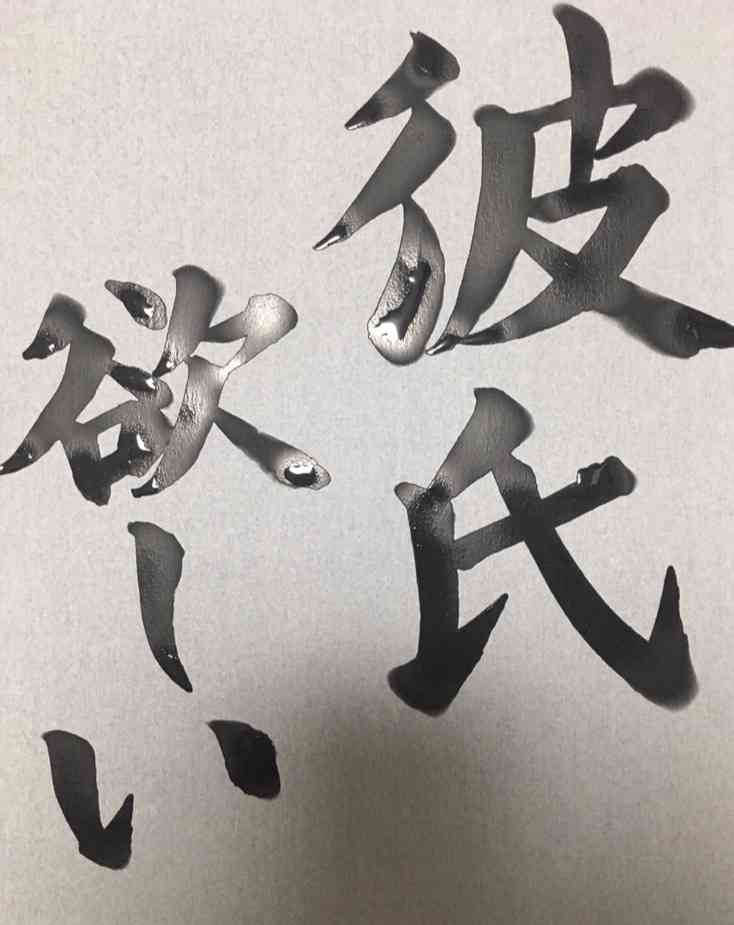 彼氏
欲ーい